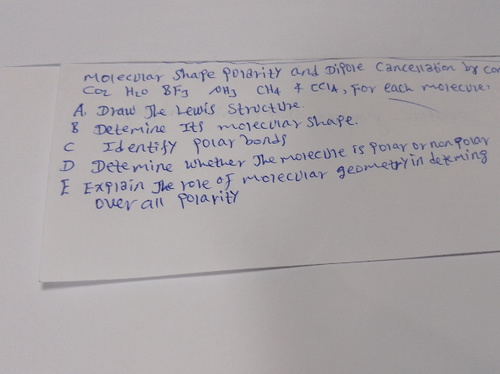 Molecular shape polarity and Dipole Cancellation by con
CO2 H2O BF3 NH3 CH4 & CCl4, For each molecule:
A. Draw The Lewis Structure.
B Detemine Its molecular shape.
C Identify polar bonds
D Detemine whether The molecule is polar or non polar
E Explain The role of molecular geometry in deteming
over all polarity